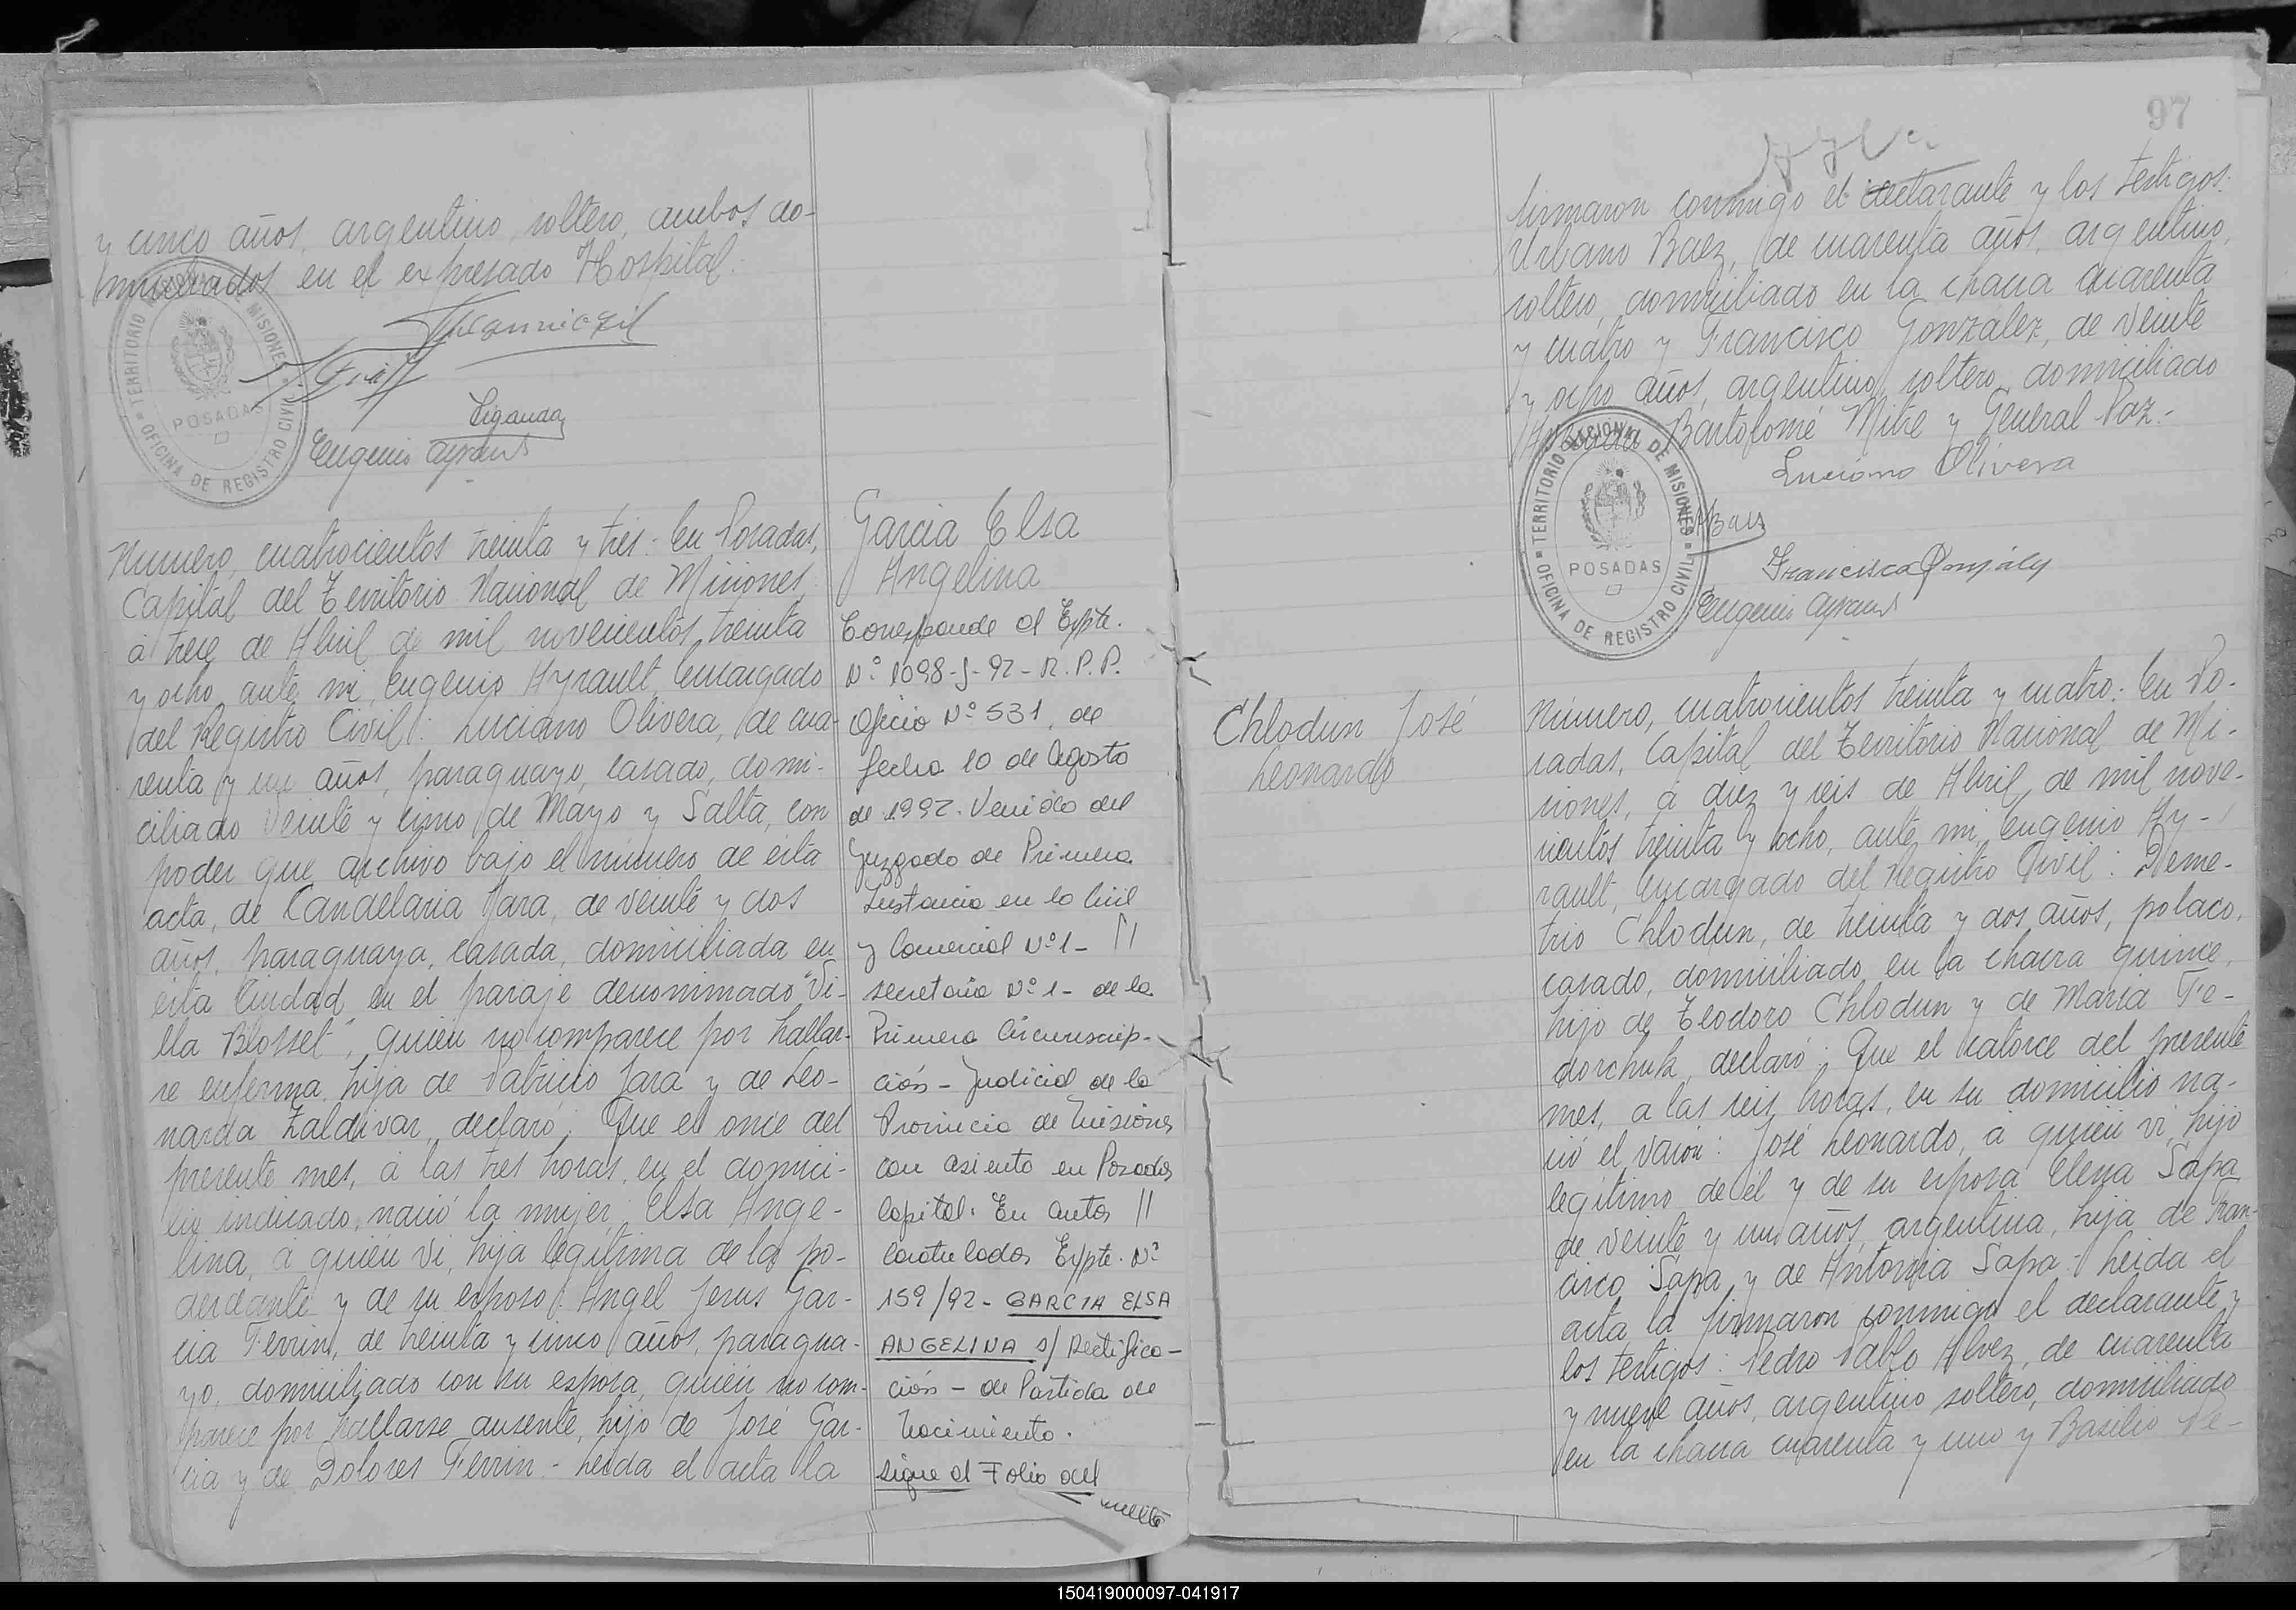 y cinco años, argentino, soltero, ambos do-
miciliados en el expresado Hospital.
TERRITORIO NACIONAL DE MISIONES
POSADAS
OFICINA DE REGISTRO CIVIL
Eugenio Ayrault
Numero, cuatrocientos treinta y tres: En Posadas,
Capital del Territorio Nacional de Misiones,
á trece de Abril de mil novecientos treinta
y ocho, ante mi, Eugenio Ayrault, Encargado
del Registro Civil: Luciano Olivera, de cua-
renta y un años, paraguayo, casado, domi-
ciliado Veinte y cinco de Mayo y Salta, con
poder que archivo bajo el número de esta
acta, de Candelaria Jara, de veinte y dos
años, paraguaya, casada, domiciliada en
esta Ciudad en el paraje denominado "Vi-
lla Blosset", quien no comparece por hallar-
se enferma, hija de Patricio Jara y de Leo-
narda Zaldivar, declaró: Que el once del
presente mes, á las tres horas, en el domici-
lio indicado, nació la mujer: Elsa Ange-
lina, á quien vi, hija legítima de la po-
derdante y de su esposo: Angel Jesus Gar-
cia Ferrin, de treinta y cinco años, paragua-
yo, domiciliado con su esposa, quien no com-
parece por hallarse ausente, hijo de José Gar-
cia y de Dolores Ferrin.- Leida el acta la
Garcia Elsa
Angelina
Corresponde al Expte.
Nº 1098-J-92-R.P.P.
Oficio Nº 531, de
fecha 10 de Agosto
de 1992. Venido del
Juzgado de Primera
Instancia en lo Civil
y Comercial Nº1- //
secretaría Nº 1- de la
Primera Circunscrip-
ción - Judicial de la
Provincia de Misiones
con asiento en Posadas
Capital. En autos //
Caratulados Expte. Nº
159/92- GARCIA ELSA
ANGELINA s/ Rectifica-
ción - de Partida de
Nacimiento.
sigue al Folio del
vuelto
97
firmaron conmigo el declarante y los testigos:
Urbano Baez, de cuarenta años, argentino,
soltero, domiciliado en la chacra cuarenta
y cuatro y Francisco Gonzalez, de veinte
y ocho años, argentino, soltero, domiciliado
Bartolomé Mitre y General Paz.-
Luciano Olivera
TERRITORIO NACIONAL DE MISIONES
POSADAS
OFICINA DE REGISTRO CIVIL
Baez
Francisco Gonzalez
Eugenio Ayrault
Chlodun José
Leonardo
Número, cuatrocientos treinta y cuatro: En Po-
sadas, Capital del Territorio Nacional de Mi-
siones, á diez y seis de Abril de mil nove-
cientos treinta y ocho, ante mi, Eugenio Ay-
rault, Encargado del Registro Civil: Deme-
trio Chlodun, de treinta y dos años, polaco,
casado, domiciliado en la chacra quince,
hijo de Teodoro Chlodun y de Maria Fe-
dorchuk, declaró: Que el catorce del presente
mes, a las seis horas, en su domicilio na-
ció el varón: José Leonardo, á quien vi, hijo
legítimo de él y de su esposa Elena Sapa
de veinte y un años, argentina, hija de Fran-
cisco Sapa y de Antonia Sapa.- Leida el
acta la firmaron conmigo el declarante y
los testigos: Pedro Pablo Alvez, de cuarenta
y nueve años, argentino soltero, domiciliado
en la chacra cuarenta y uno y Basilio Pe-
150419000097-041917